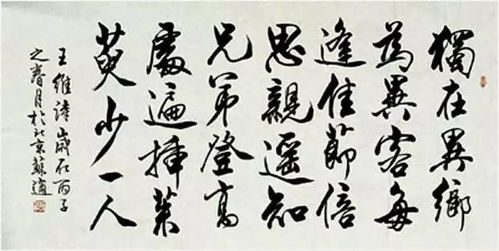 獨在異鄉
為異客每
逢佳節倍
思親遥知
兄弟登高
處遍插茱
萸少一人
王維詩歲在丙子
之春月於北京蘇適